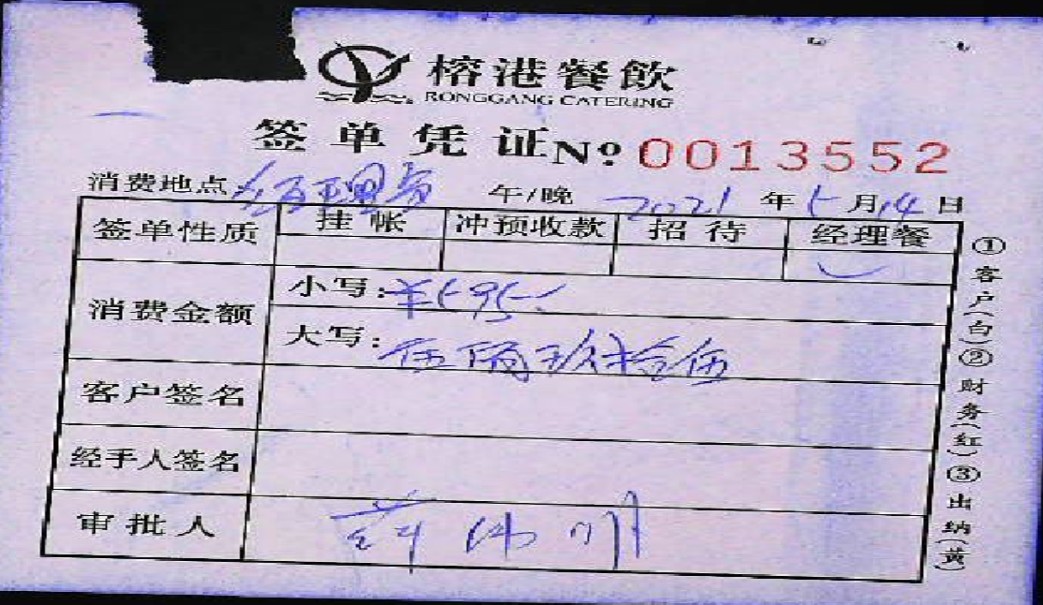 榕港餐飲
RONGGANG CATERING
签单凭证 Nº 0013552
消费地点 经理 午/晚 2021 年 5 月 14 日
签单性质 挂帐 冲预收款 招待 经理餐
消费金额 小写:¥595
大写:伍佰玖拾伍
客户签名
经手人签名
审批人
①客户(白)②财务(红)③出纳(黄)